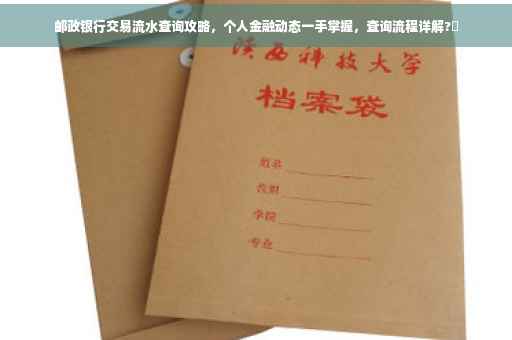 邮政银行交易流水查询攻略，个人金融动态一手掌握，查询流程详解?
陕西科技大学
档案袋
姓名
学院
专业